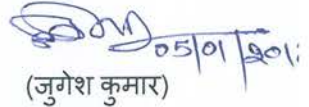 05/01/201
(जुगेश कुमार)